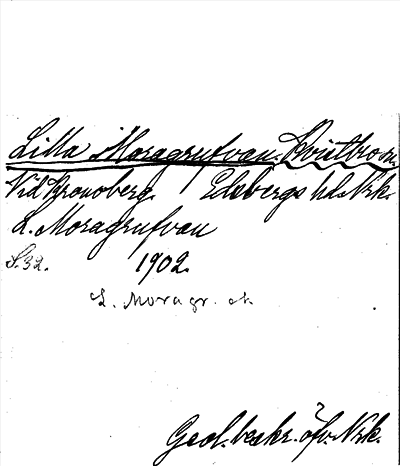 Lilla Moragrufvan. Kvistbro sn.
Vid Kronoberg. Edsbergs hd. Nrk.
L. Moragrufvan
S. 32. 1902.
L. Moragr. ak
Geol. beskr. öfv. Nrk.